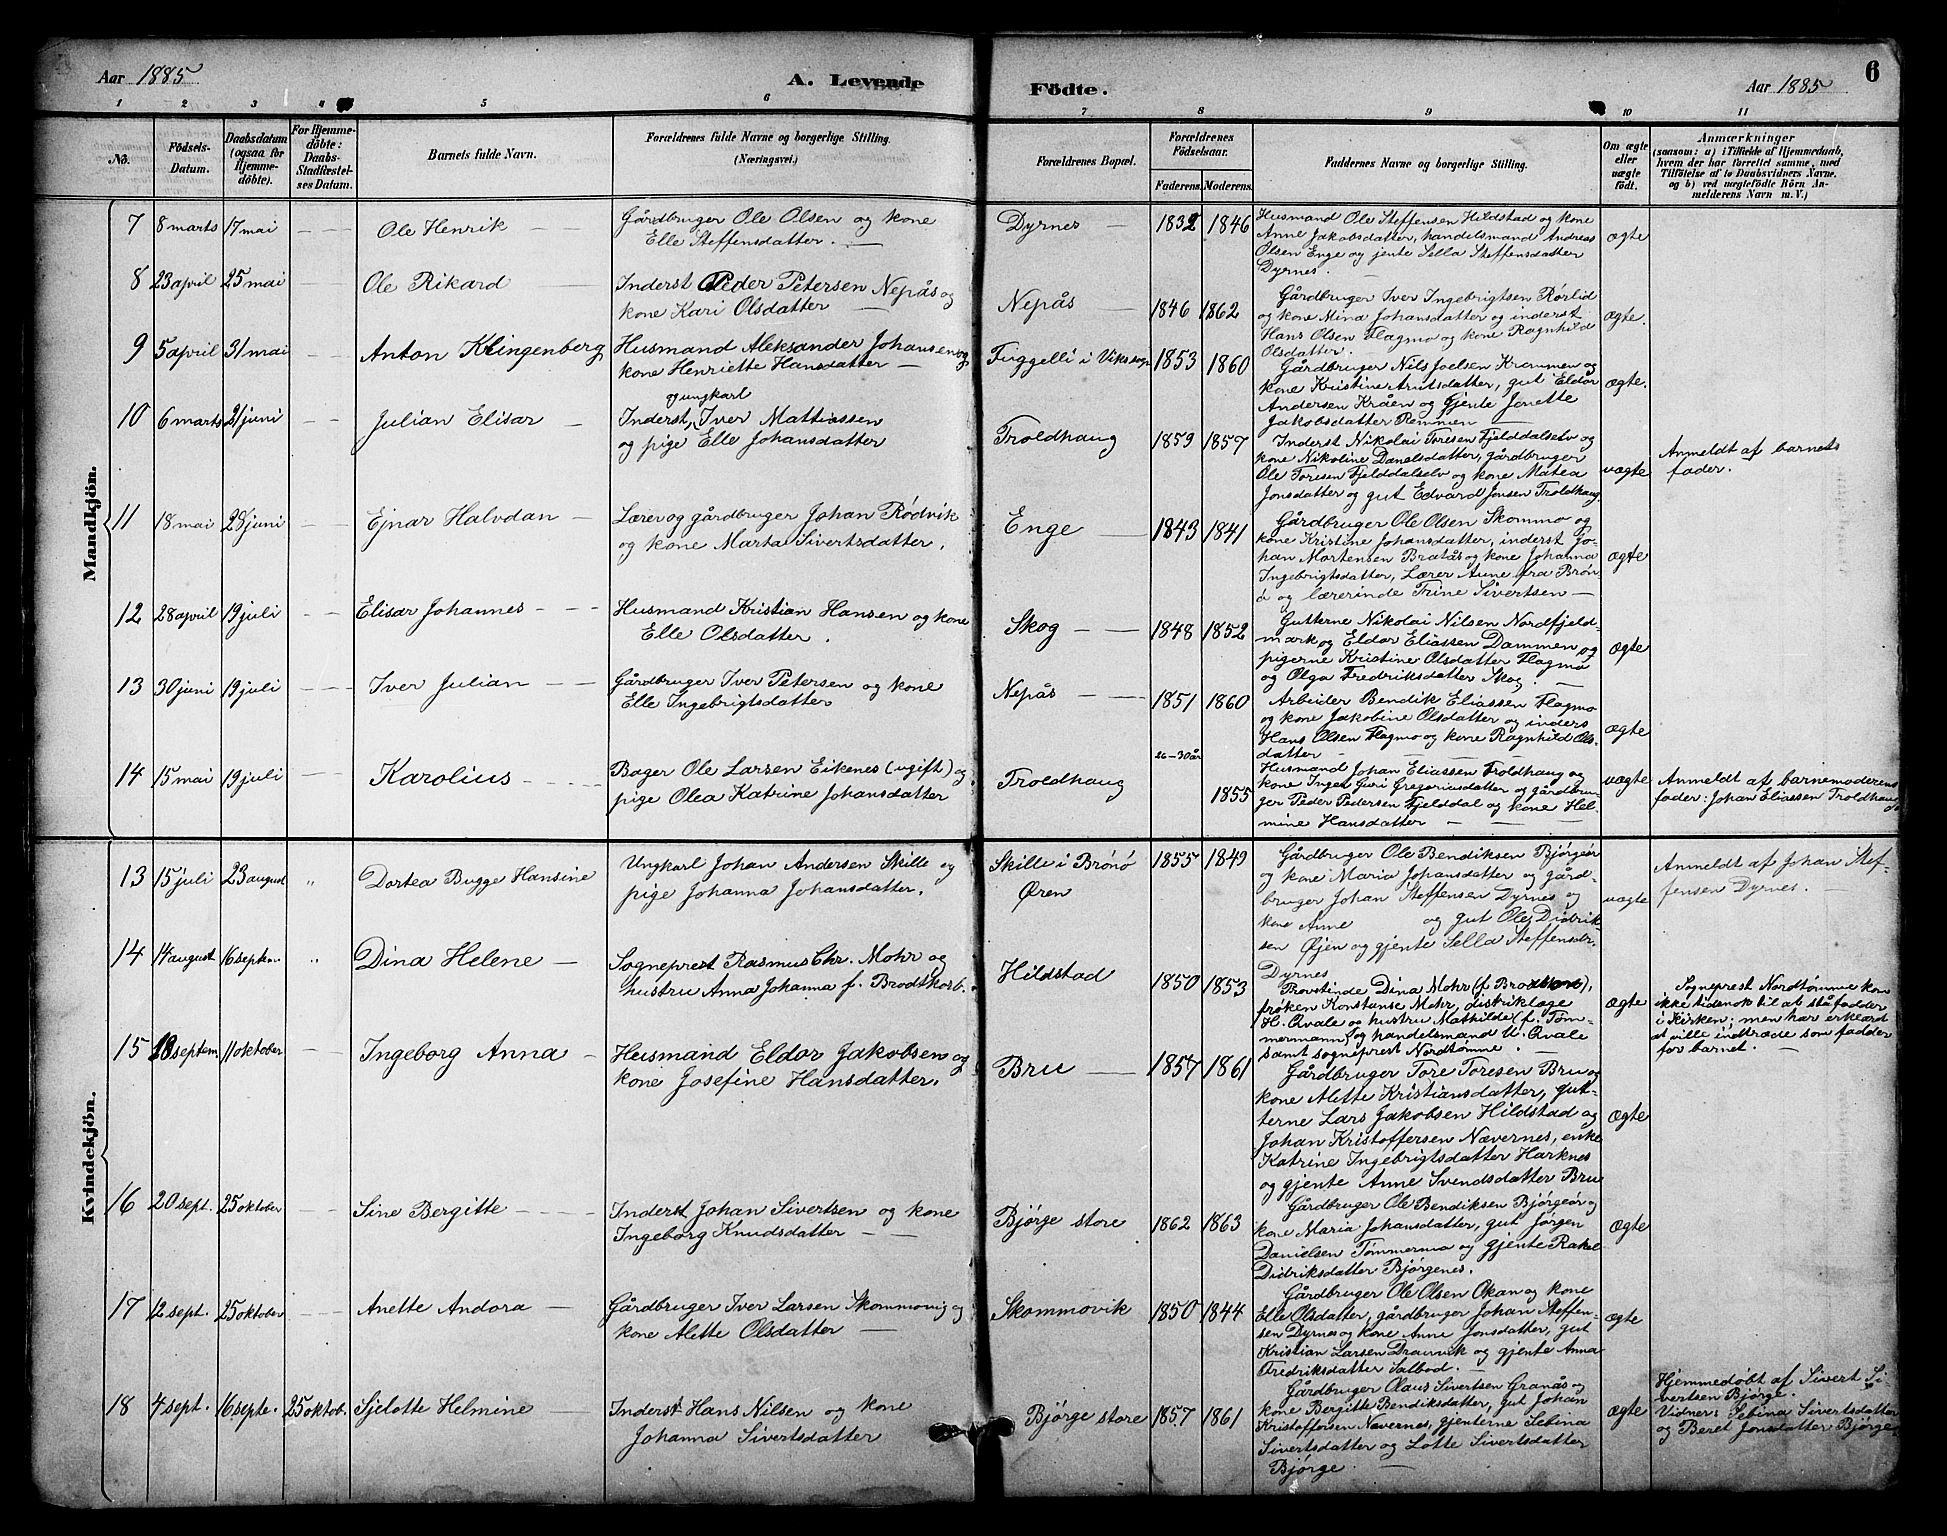 Aar 1885
A. Levende
Födte.
Aar 1885
6
1 2 3 4 5 6 7 8 9 10 11
No.
Födsels-
Datum.
Daabsdatum
(ogsaa for
Hjemme-
döbte).
For Hjemme-
döbte:
Daabs-
Stadfæstel-
ses Datum.
Barnets fulde Navn.
Forældrenes fulde Navne og borgerlige Stilling.
(Næringsvei.)
Forældrenes Bopæl.
Forældrenes
Födselsaar.
Faderens. Moderens.
Faddernes Navne og borgerlige Stilling.
Om ægte
eller
uægte
födt.
Anmærkninger
(saasom: a) i Tilfælde af Hjemmedaab,
hvem der har forrettet samme, med
Tilföielse af to Daabsvidners Navne,
og b) ved uægtefödte Börn An-
melderens Navn m. V.)
Mandkjön.
7 8 marts 17 mai — — Ole Henrik —
Gårdbruger Ole Olsen og kone
Elle Steffensdatter. —
Dyrnes — 1832 1846
Husmand Ole Steffensen Hildstad og kone
Anne Jakobsdatter, handelsmand Andreas
Olsen Enge og jente Sella Steffensdatter
Dyrnes. —
ægte
8 23 april 25 mai — — Ole Rikard —
Inderst Peder Petersen Nepås og
kone Kari Olsdatter —
Nepås — 1846 1862
Gårdbruger Iver Ingebrigtsen Rörlid
og kone Mina Johansdatter og inderst
Hans Olsen Flagmo og kone Ragnhild
Olsdatter. —
ægte.
9 5 april 31 mai — — Anton Klingenberg
Husmand Aleksander Johansen og
kone Henriette Hansdatter —
Fuggelli i Viks sogn 1853 1860
Gårdbruger Nils Joelsen Krommen og
kone Kristine Arntsdatter, gut Eldor
Andersen Kråen og Gjente Jonette
Jakobsdatter Remmen —
ægte.
10 6 marts 21 juni — — Julian Elisar —
og ungkarl
Inderst, Iver Mattiassen
og pige Elle Johansdatter
Troldhaug 1859 1857
Inderst Nikolai Toresen Fjelddalselv og
kone Nikoline Danelsdatter, gårdbruger
Ole Toresen Fjelddalselv og kone Matea
Jonsdatter og gut Edvard Jensen Troldhaug
uægte
Anmeldt af barnets
fader.
11 18 mai 28 juni — — Ejnar Halvdan —
Lærer og gårdbruger Johan Rødvik
og kone Marta Sivertsdatter.
Enge — 1843 1841
Gårdbruger Ole Olsen Skommo og
kone Kristine Johansdatter, inderst Jo-
han Mortensen Bratås og kone Johanna
Ingebrigtsdatter, Lærer Aune fra Brön-
ö og lærerinde Trine Sivertsen —
ægte
12 28 april 19 juli — — Elisar Johannes — — —
Husmand Kristian Hansen og kone
Elle Olsdatter.
Skog — — 1848 1852
Gutterne Nikolai Nilsen Nordfjeld-
mark og Eldor Eliassen Dammen og
pigerne Kristine Olsdatter Flagmo
og Olga Fredriksdatter Skog. —
ægte
13 30 juni 19 juli — — Iver Julian — —
Gårdbruger Iver Petersen og kone
Elle Ingebrigtsdatter
Nepås — — 1851 1860
Arbeider Bendik Eliassen Flagmo
og kone Jakobine Olsdatter og inderst
Hans Olsen Flagmo og kone Ragnhild Ols-
datter — —
ægte
14 15 mai 19 juli — — Karolius — — — —
Bager Ole Larsen Eikenes (ugift) og
pige Olea Katrine Johansdatter
Troldhaug 26-30 år 1855
Husmand Johan Eliassen Troldhaug og
kone Inger Guri Gregoriusdatter og gårdbru-
ger Peder Pedersen Fjelddal og kone Hel-
mine Hansdatter — — —
uægte
Anmeldt af barnemoderens
fader: Johan Eliassen Troldhaug
Kvindekjön.
13 15 juli 23 august " Dortea Bugge Hansine
Ungkarl Johan Andersen Skille og
pige Johanna Johansdatter.
Skille i Brönö
Øren
1855 1849
Gårdbruger Ole Bendiksen Bjørgeör
og kone Maria Johansdatter og gård-
bruger Johan Steffensen Dyrnes og
kone Anne og gut Ole Didrik-
sen Øjen og gjente Sella Steffensdr.
Dyrnes
uægte
Anmeldt af Johan Stef-
fensen Dyrnes. —
14 14 august 16 septem. " Dina Helene —
Sogneprest Rasmus Chr. Mohr og
hustru Anna Johanna f. Brodtkorb.
Hildstad 1850 1853
Provstinde Dina Mohr (f. Brodtkorb),
frøken Konstanse Mohr, distriktslæge
H. Qvale og hustru Mathilde (f. Töm-
mermann) og handelsmand U. Qvale
samt sogneprest Nordtömme. —
ægte
Sogneprest Nordtömme kom
ikke tidsnok til at stå fadder
i Kirken; men har erklært
at ville indtræde som fadder
for barnet. —
15 18 septem. 11 oktober — Ingeborg Anna —
Husmand Eldor Jakobsen og
kone Josefine Hansdatter.
Bru — 1857 1861
Gårdbruger Tore Toresen Bru og
kone Alette Kristiansdatter, gut-
terne Lars Jakobsen Hildstad og
Johan Kristoffersen Nævernes, enke
Katrine Ingebrigtsdatter Harknes
og gjente Anne Svendsdatter Bru
ægte
16 20 sept. 25 oktober — — Sine Bergitte — — — —
Inderst Johan Sivertsen og kone
Ingeborg Knudsdatter — —
Bjørge store 1862 1863
Gårdbruger Ole Bendiksen Bjørgeör og
kone Maria Johansdatter, gut Jörgen
Danielsen Tömmermo og gjente Rakel
Didriksdatter Bjørgenes.
ægte
17 12 sept. 25 oktober — — Anette Andora —
Gårdbruger Iver Larsen Skommovig og
kone Alette Olsdatter —
Skommovik 1850 1844
Gårdbruger Ole Olsen Okan og kone
Elle Olsdatter, gårdbruger Johan Steffen-
sen Dyrnes og kone Anne Jonsdatter, gut
Kristian Larsen Dravvik og gjente Anna
Fredriksdatter Salbod. —
ægte
18 4 sept. 16 septe. 25 oktob. Sjelotte Helmine —
Inderst Hans Nilsen og kone
Johanna Sivertsdatter
Bjørge store 1857 1861
Gårdbruger Olaus Sivertsen Granås og
kone Bergitte Bendiksdatter, gut Johan
Kristoffersen Nævernes, gjenterne Sebina
Sivertsdatter og Lotte Sivertsdatter
Bjørge —
ægte
Hjemmedøbt af Sivert Si-
vertsen Bjørge.
Vidner: Sebina Sivertsdatter
og Beret Jonsdatter Bjørge